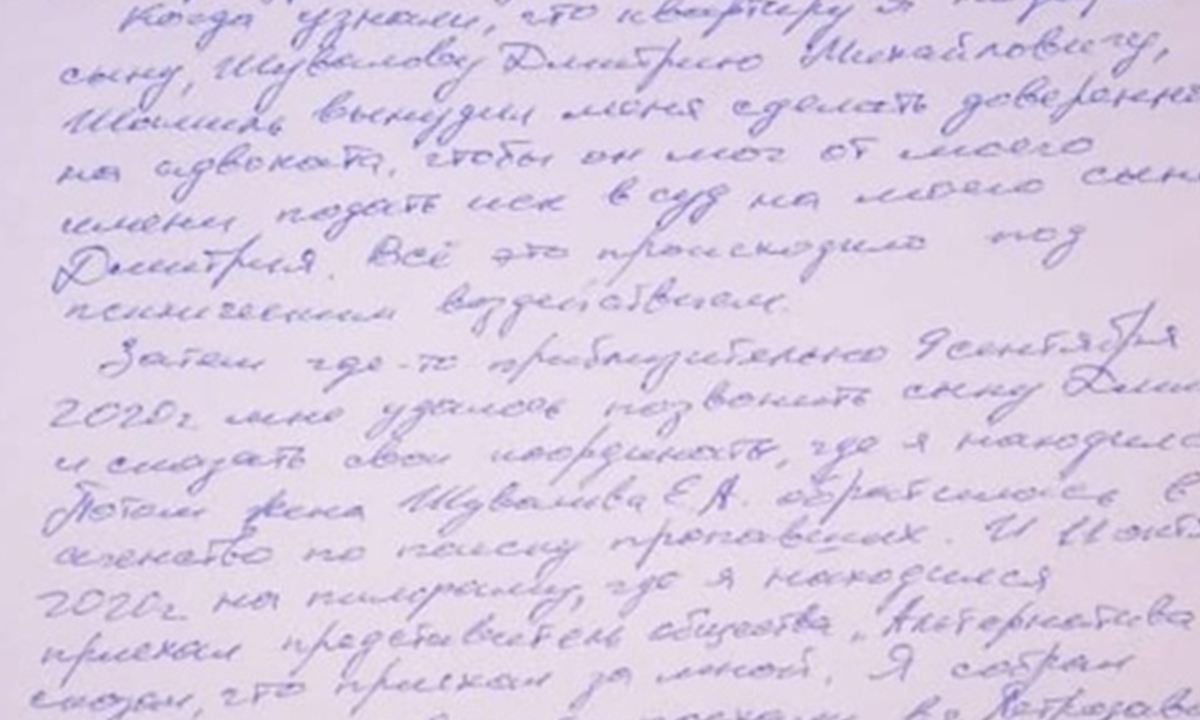 Когда узнали, что квартиру я
сыну, Шувалову Дмитрию Михайловичу,
Шамиль вынудил меня сделать доверенно
на адвоката, чтобы он мог от моего
имени подать иск в суд на моего сына
Дмитрия. Всё это происходило под
психическим воздействием.
Затем где-то приблизительно 9 сентября
2020г мне удалось позвонить сыну Дми
и сказать свои координаты, где я находилс
Потом жена Шувалова Е.А. обратилась в
агенство по поиску пропавших. И 11 октя
2020г на пилораму, где я находился
приехал представитель общества „Альтернатива
сказал, что приехал за мной. Я собрал
поехали в Петрозаво